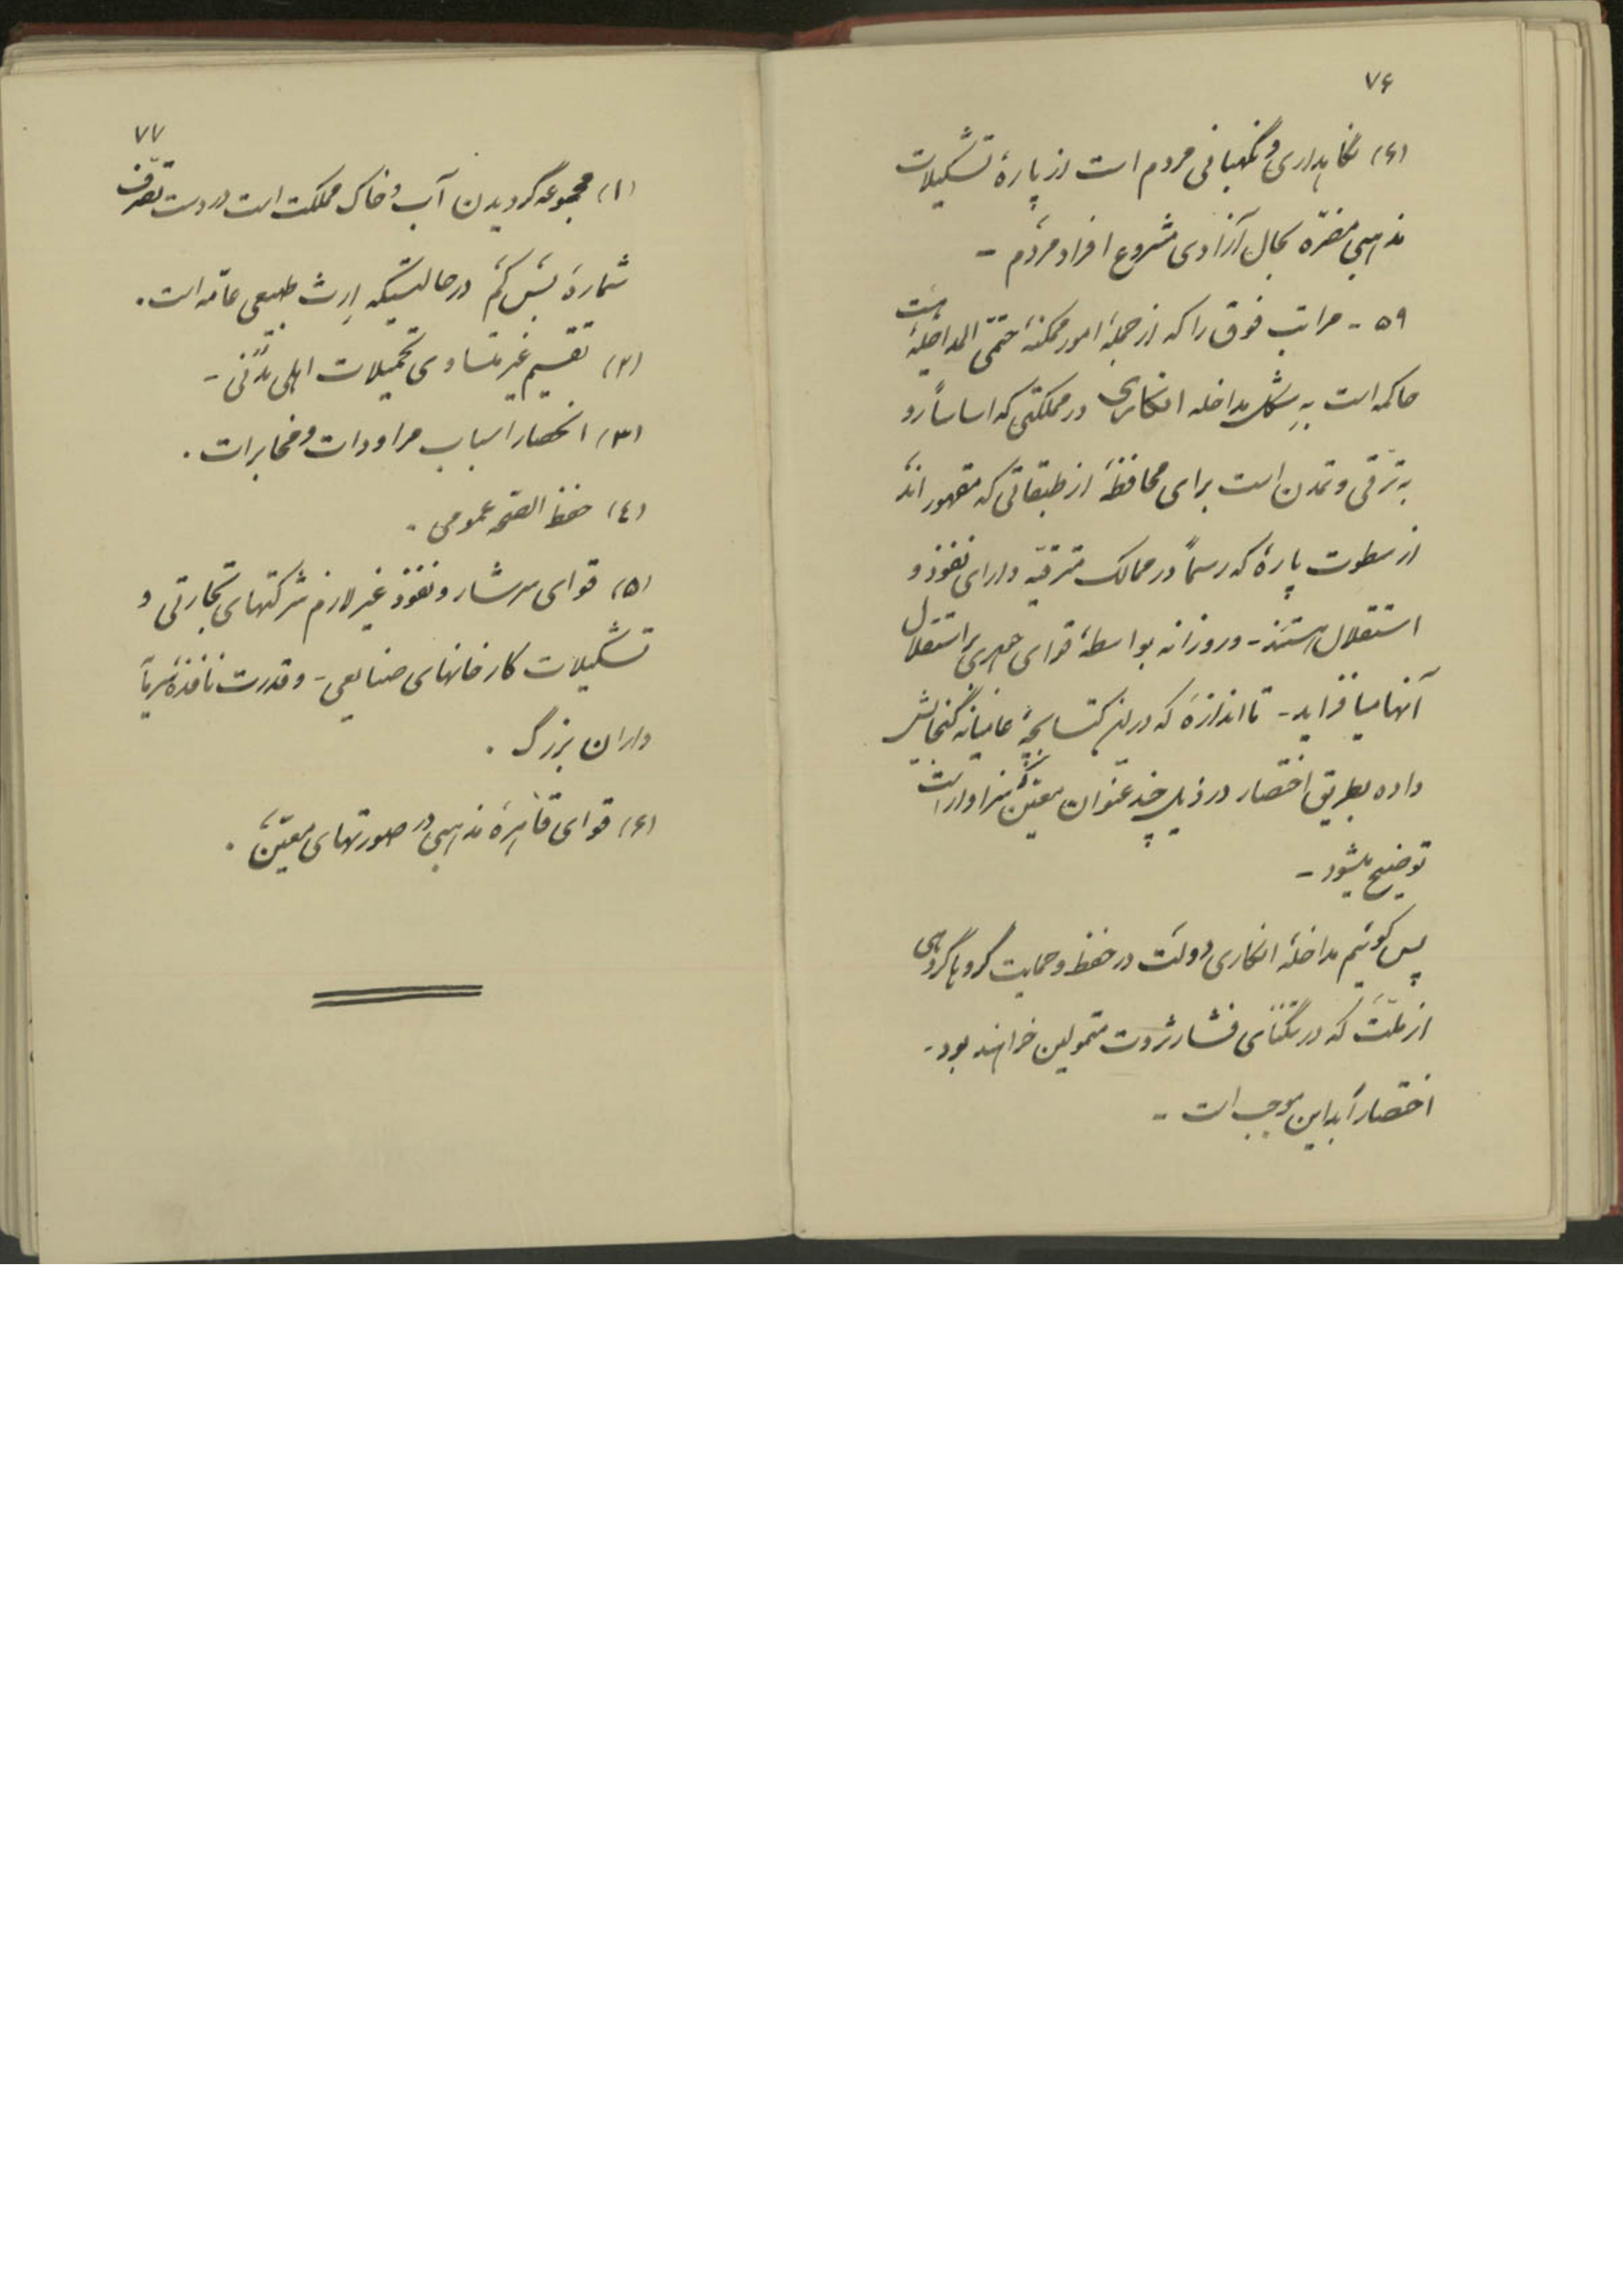 ۷۶
(۶) نگاهداری و نگهبانی مردم است از پارهٔ تشکیلات
مذهبی مضرّه بحال آزادی مشروع افراد مردم -
۵۹ - مراتب فوق را که از جملهٔ امور ممکنهٔ حتمی المداخلهٔ هیئت
حاکمه است به شکل مداخله انکاری در مملکتی که اساساً رو
به ترّقی و تمدن است برای محافظهٔ از طبقاتی که مقهور اند
از سطوت پارهٔ که رسماً در ممالک مترقیّه دارای نفوذ و
استقلال هستند - و روزانه بواسطهٔ قوای جبری بر استقلال
آنها میافزاید - تا اندازهٔ که در این کتابچهٔ عامیانه گنجایش
داده بطریق اختصار در ذیل چند عنوان معیّن سزاوار است
توضیح میشود -
پس گوئیم مداخلهٔ انکاری دولت در حفظ و حمایت گروه یا گروهی
از ملّت که در تنگنای فشار ثروت متمولین خواهند بود -
اختصاراً بداین موجب است -
۷۷
(۱) مجموعه گردیدن آب و خاک مملکت است در دست تصرّف
شمارهٔ بس کم در حالتیکه اِرث طبیعی عامّه است.
(۲) تقسیم غیر متساوی تحمیلات اهلی تمدّنی -
(۳) انحصار اسباب مراودات و مخابرات.
(٤) حفظ الصحّه عمومی.
(۵) قوای سرشار و نفوذ غیر لازم شرکتهای تجارتی و
تشکیلات کارخانهای صنایعی - و قدرت نافذهٔ سرمایه
داران بزرگ.
(۶) قوای قاهرهٔ مذهبی در صورتهای معیّن.